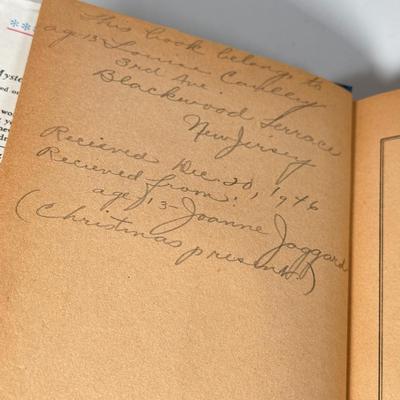 ***
Myste
This book belongs to
age 13 Louise Cauley
3rd Ave.
Blackwood Terrace
New Jersey
Recieved Dec. 20, 1946
Recieved from:
age 13 - Joanne Jaggard
(Christmas present)